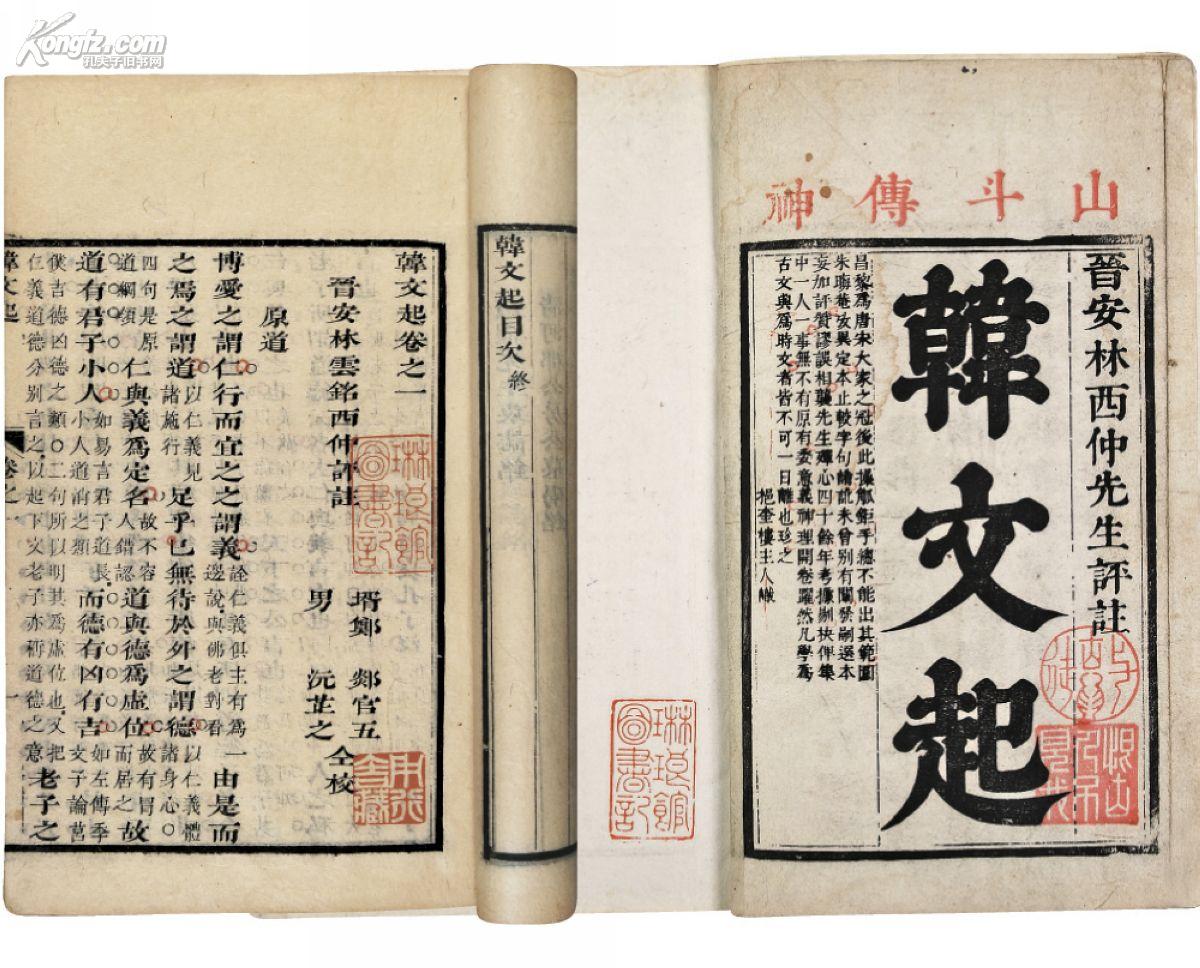 Kongfz.com
孔夫子旧书网
山斗傳神
晉安林西仲先生評註
韓文起
昌黎爲唐宋大家之冠後此操觚鉅手總不能出其範圍
朱晦菴攷異定本止較字句譌訛未曾別有闡發嗣選本
妄加評贊謬誤相襲先生殫心四十餘年考據剔抉伴集
中一人一事無不有原有委意義神理開卷躍然凡學爲
古文與爲時文者皆不可一日離也珍之
挹奎樓主人識
琳琅館圖書記
韓文起目次終
韓文起卷之一
晉安林雲銘西仲評註
壻鄭郯官五
男沅芷之
仝校
琳琅館圖書記
原道
博愛之謂仁行而宜之之謂義詮仁義俱主有爲邊說與佛老對看由是而
之焉之謂道以仁義見諸施行足乎己無待於外之謂德以仁義體諸身心〇
四句是原道綱領仁與義爲定名人錯認故不容道與德爲虛位而居之故有冒故
道有君子小人如易言君子道長小人道消之類而德有凶有吉如左傳季文子論莒
僕吉德凶德之類〇二句所以明其爲虛位也又把仁義道德分別言之以起下文老子亦稱道德之意老子之
韓文起
卷之一
一